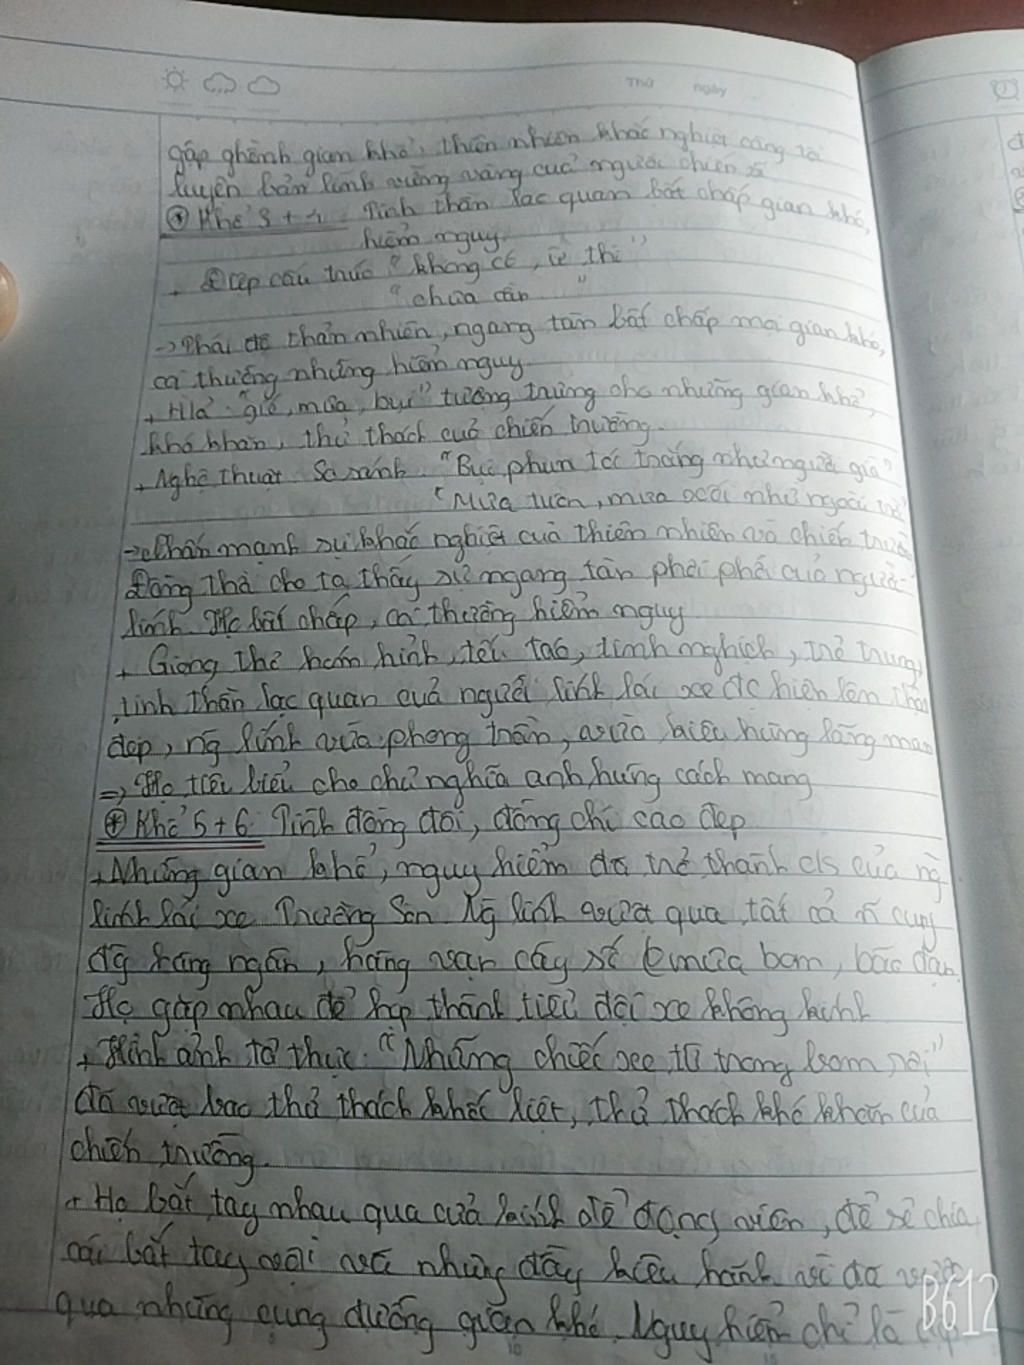 Thứ ngày
gập ghềnh gian khổ, thiên nhiên khắc nghiệt càng tôi
luyện bản lĩnh vững vàng của người chiến sĩ
+ Khổ 3 + 4 Tinh thần lạc quan bất chấp gian khó,
hiểm nguy.
+ cấu trúc "không có, ừ thì"
"chưa cần "
-> Thái độ thản nhiên, ngang tàn bất chấp mọi gian khó,
coi thường những hiểm nguy.
+ H/a "gió, mưa, bụi" tượng trưng cho những gian khổ,
khó khăn, thử thách cuả chiến trường.
+ Nghệ thuật So sánh "Bụi phun tóc trắng như người già"
"Mưa tuôn, mưa xối như ngoài trời"
-> Nhấn mạnh sự khắc nghiệt của thiên nhiên và chiến trường
Đồng thời cho ta thấy sự ngang tàn phơi phới của người
lính. Họ bất chấp, coi thường hiểm nguy
+ Giọng thơ hóm hỉnh, tếu táo, tinh nghịch, trẻ trung,
tinh thần lạc quan của người lính lái xe đc hiện lên thật
đẹp, ng lính vừa phong trần, vừa hiêu hùng lãng mạn
=> Họ tiêu biểu cho chủ nghĩa anh hùng cách mạng
+ Khổ 5 + 6: Tình đồng đội, đồng chí cao đẹp
+ Những gian khổ, nguy hiểm đã trở thành c/s của ng
lính lái xe Trường Sơn. Ng lính vượt qua tất cả n cung
đg hàng ngàn, hàng vạn cây số mưa bom, bão đạn.
Họ gặp nhau để họp thành tiểu đội xe không kính
+ Hình ảnh tả thực: "Những chiếc xe từ trong bom rơi"
đã vượt bao thử thách khốc liệt, thử thách khó khăn của
chiến trường.
+ Họ bắt tay nhau qua cửa kính để động viên, để sẻ chia,
cái bắt tay vội vã nhưng đầy kiêu hãnh vì đã vượt
qua những cung đường gian khó. Nguy hiểm chỉ là
B612